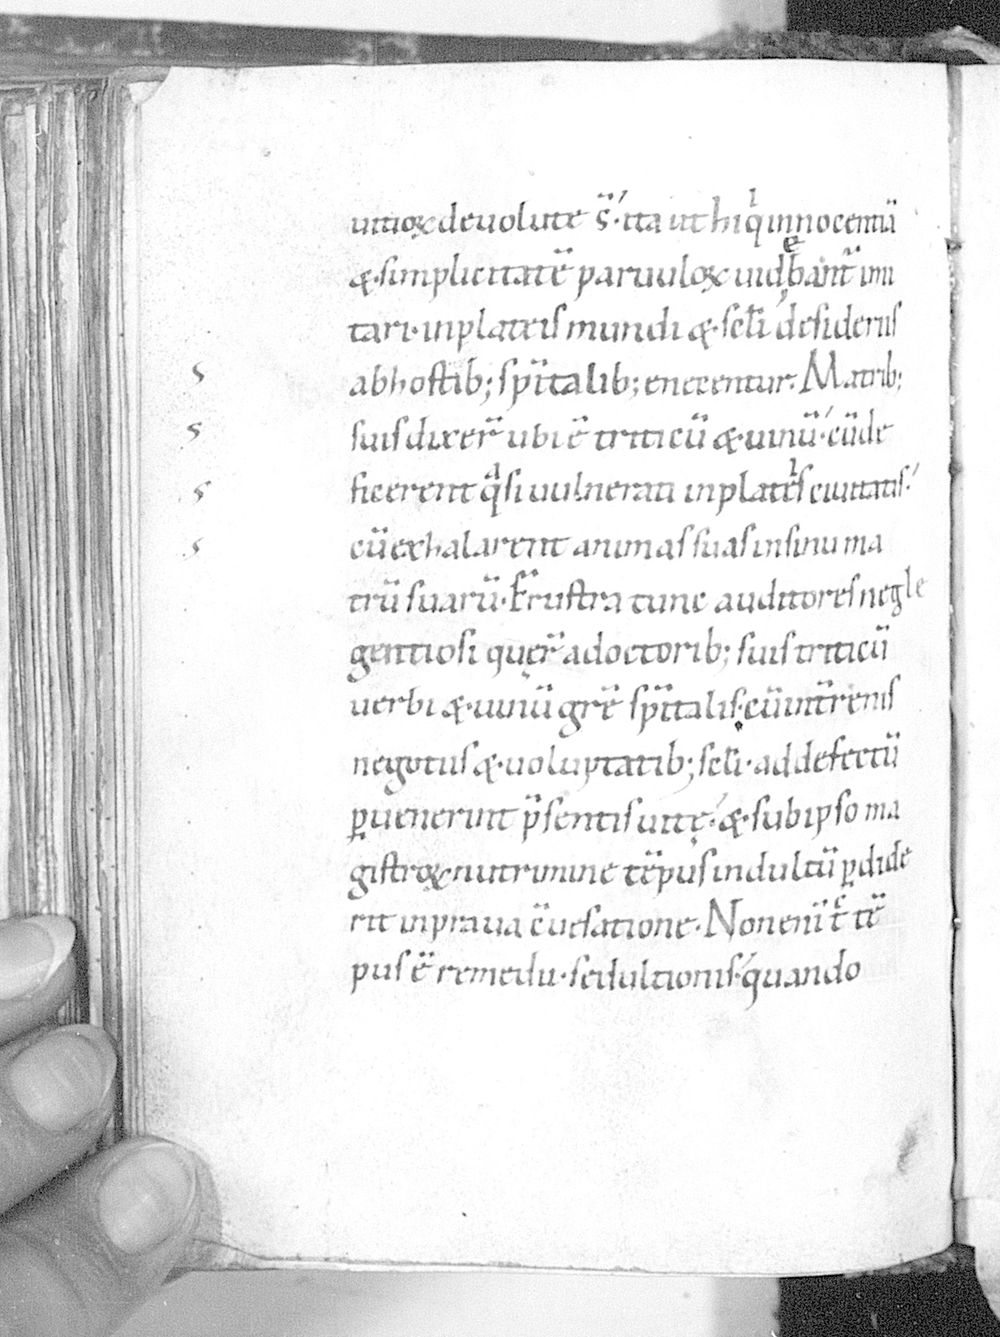 uitioꝝ deuolute s̄· ita ut hi qͥ innocentiā
&·simplicitatē paruuloꝝ uidebant̄ imi
tari· in plateis mundi &·sc̄li desideriis
ab hostib; sp̄italib; enecentur. Matrib;
s suis dixer̄ ubi ē triticū &·uinū· cū de
s ficerent qͣsi uulnerati in plateis ciuitatis·
s cū exhalarent animas suas in sinu ma
s trū suarū· Frustra tunc auditores negle
gentiosi quęr̄ a doctorib; suis triticū
uerbi &·uinū gr̄ę sp̄italis· cū in t̄renis
negotiis &·uoluptatib; sc̄li· ad defectū
ꝑuenerint p̄sentis uitę· &·sub ipso ma
gistroꝝ nutrimine tēpus indultū ꝑdide
rit in praua c̄uersatione· Non enī t̄c tē
pus ē remedii· sed ultionis· quando